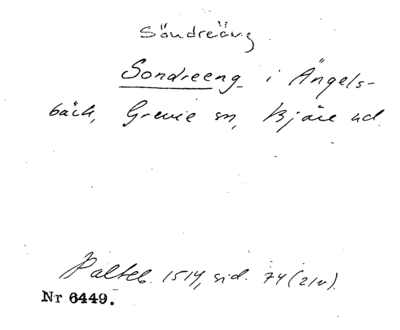 Söndreäng
Sondreeng i Ängels-
bäck, Grevie sn, Bjäre hd.
Palteb. 1514, sid. 74 (21v).
Nr 6449.